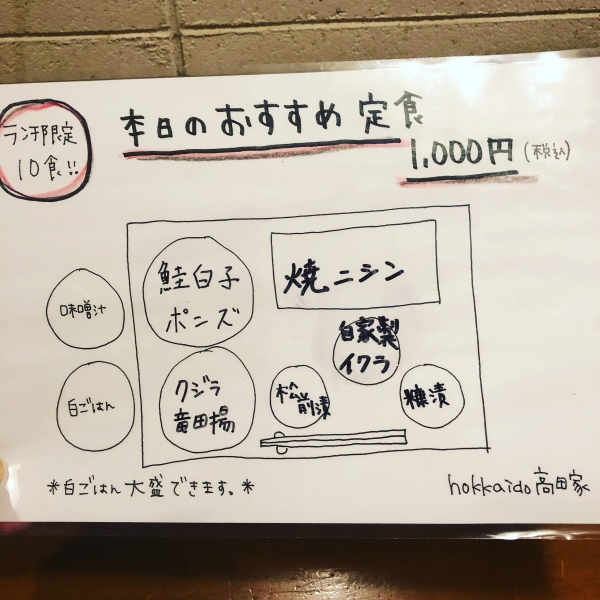 ランチ限定
10食!!
本日のおすすめ定食
1,000円(税込)
鮭白子
ポンズ
焼ニシン
味噌汁
自家製
イクラ
白ごはん
クジラ
竜田揚
松前漬
糠漬
*白ごはん大盛できます。*
hokkaido高田家